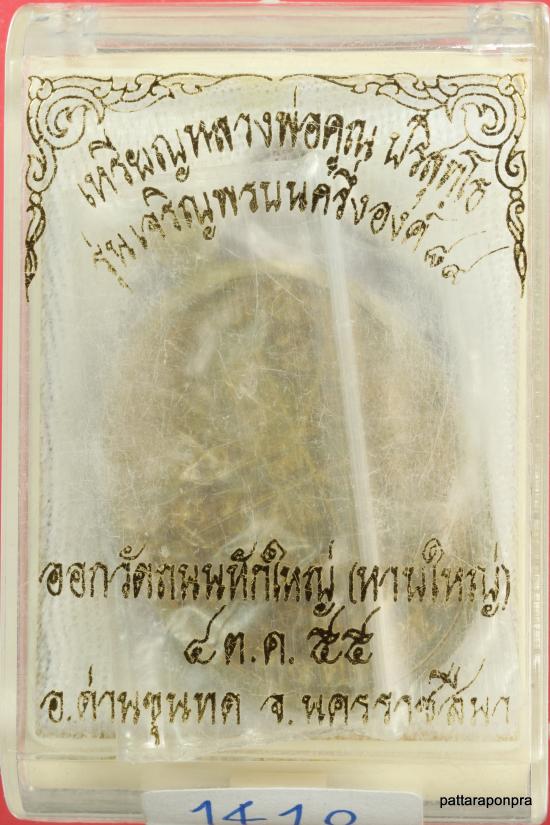 เหรียญหลวงพ่อคูณ ปริสุทฺโธ
รุ่นเจริญพรบนครึ่งองค์ ๙๑
ออกวัดถนนหักใหญ่ (หานใหญ่)
๔ ต.ค. ๕๕
อ.ด่านขุนทด จ.นครราชสีมา
pattaraponpra